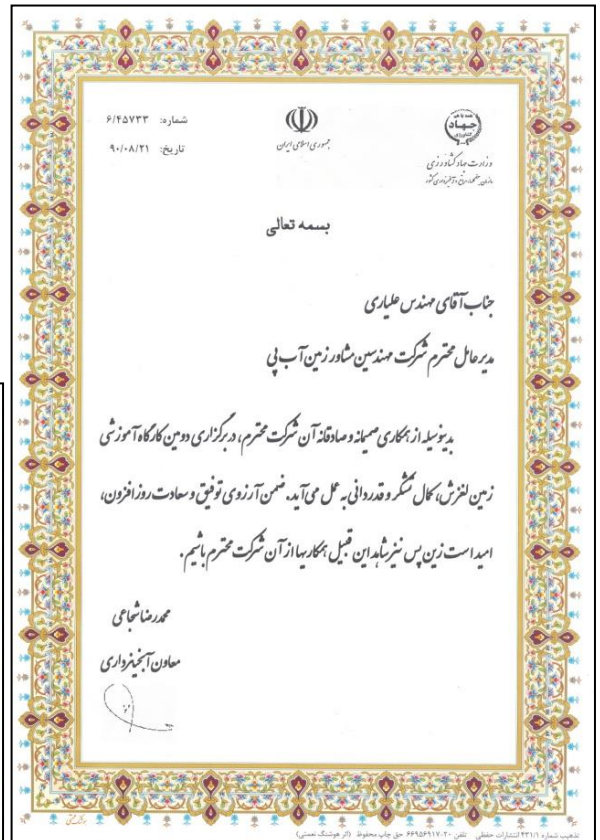 شماره: ۶/۴۵۷۳۳
تاریخ: ۹۰/۰۸/۲۱
جمهوری اسلامی ایران
جهاد
وزارت جهاد کشاورزی
بسمه تعالی
جناب آقای مهندس علیاری
مدیر عامل محترم شرکت مهندسین مشاور زمین آب پی
بدینوسیله از همکاری صمیمانه و صادقانه آن شرکت محترم، در برگزاری دومین کارگاه آموزشی
زمین لغزش، کمال تشکر و قدردانی به عمل می‌آید. ضمن آرزوی توفیق و سعادت روزافزون،
امید است زین پس نیز شاهد این قبیل همکاریها از آن شرکت محترم باشیم.
محمدرضا شجاعی
معاون آبخیزداری
تذهیب شماره ۴۳۱/۱ انتشارات حفظی تلفن ۲۰-۶۶۹۵۶۹۱۷ حق چاپ محفوظ (اثر هوشنگ نعمتی)